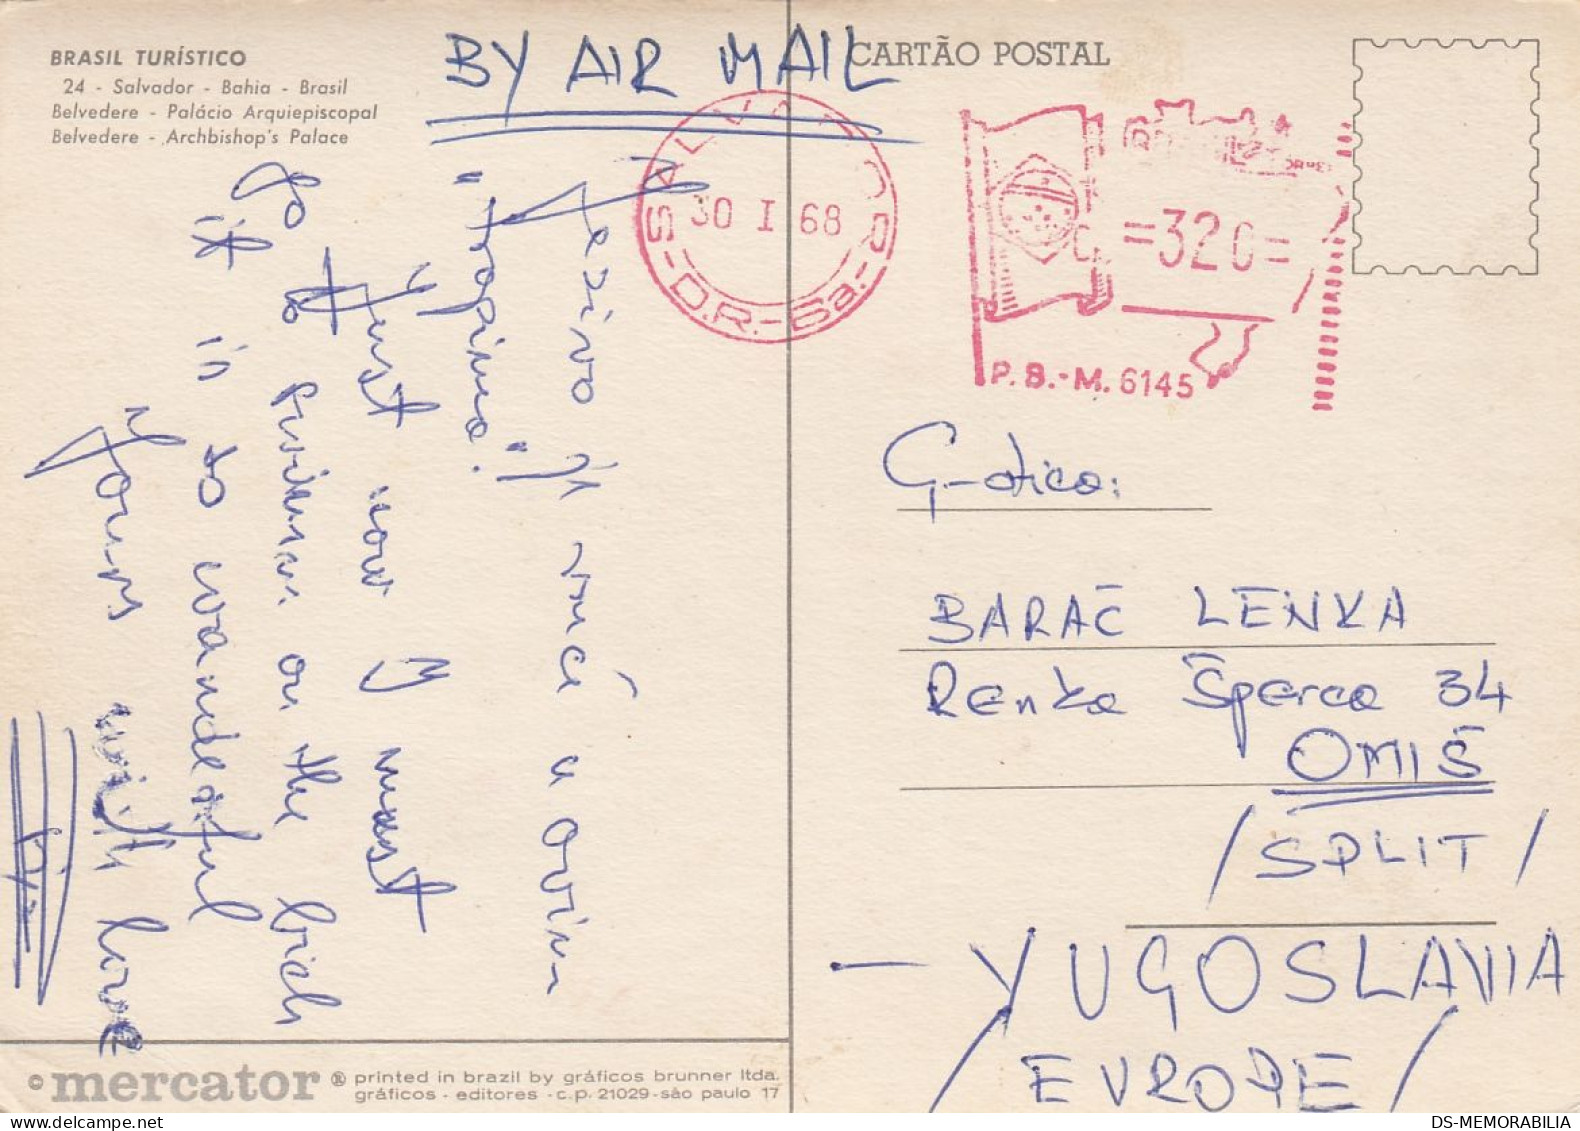 BRASIL TURÍSTICO
24 - Salvador - Bahia - Brasil
Belvedere - Palácio Arquiepiscopal
Belvedere - Archbishop's Palace
BY AIR MAIL
CARTÃO POSTAL
SALVADOR
30 I 68
S-D.R.-Ba.-
=320=
P.B.-M. 6145
a ovim
"tropima".
Just now I must
go to swimm on the beich
it is so wanderful
Yours with love
G-dica:
BARAČ LENKA
Renka Šperca 34
OMIŠ
/SPLIT/
- YUGOSLAVIA
/EVROPE/
© mercator ® printed in brazil by gráficos brunner ltda.
gráficos - editores - c.p. 21029 - são paulo 17
DS-MEMORABILIA